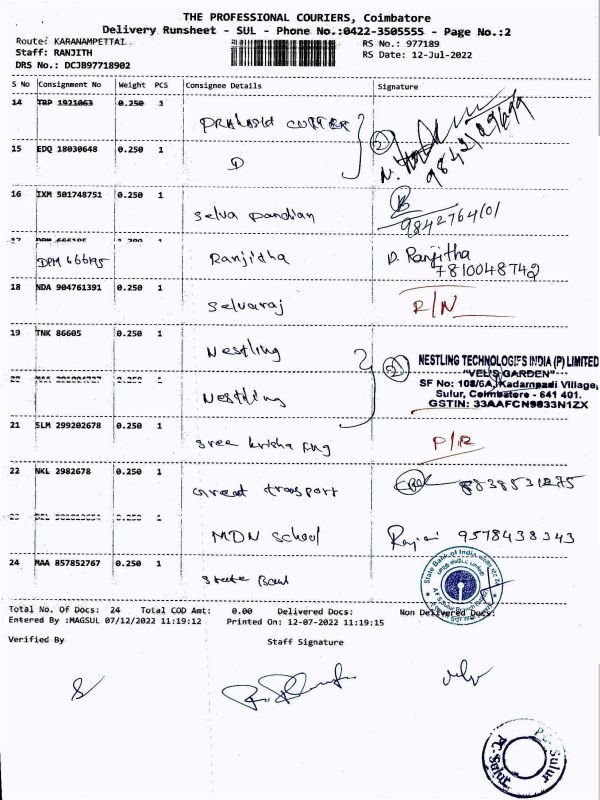 THE PROFESSIONAL COURIERS, Coimbatore
Delivery Runsheet - SUL - Phone No.:0422-3505555 - Page No.:2
Route: KARANAMPETTAI
RS No.: 977189
Staff: RANJITH
RS Date: 12-Jul-2022
DRS No.: DCJB97718902
S No Consignment No Weight PCS Consignee Details Signature
14 TRP 1921063 0.250 1
Prakash cutter
2
9842129699
15 EDQ 18030648 0.250 1
D
16 IXM 501748751 0.250 1
Selva pandian
9842764101
17 DPM 666195 1.200 1
DPM 666195 Ranjidha D. Ranjitha
7810048742
18 NDA 904761391 0.250 1
Selvaraj R/N
19 TNK 86605 0.250 1
Nestling
2
NESTLING TECHNOLOGIES INDIA (P) LIMITED
"VEL'S GARDEN"
SF No: 108/6A, Kadampadi Village,
Sulur, Coimbatore - 641 401.
GSTIN: 33AAFCN9833N1ZX
0.250 1
Nestling
21 SLM 299202678 0.250 1
Sree krisha Eng P/R
22 NKL 2982678 0.250 1
Great transport
0.250 1
MDN School 9578438343
24 MAA 857852767 0.250 1
State Bank
State Bank of India
Total No. Of Docs: 24 Total COD Amt: 0.00 Delivered Docs: Non Delivered Docs:
Entered By :MAGSUL 07/12/2022 11:19:12 Printed On: 12-07-2022 11:19:15
Verified By Staff Signature